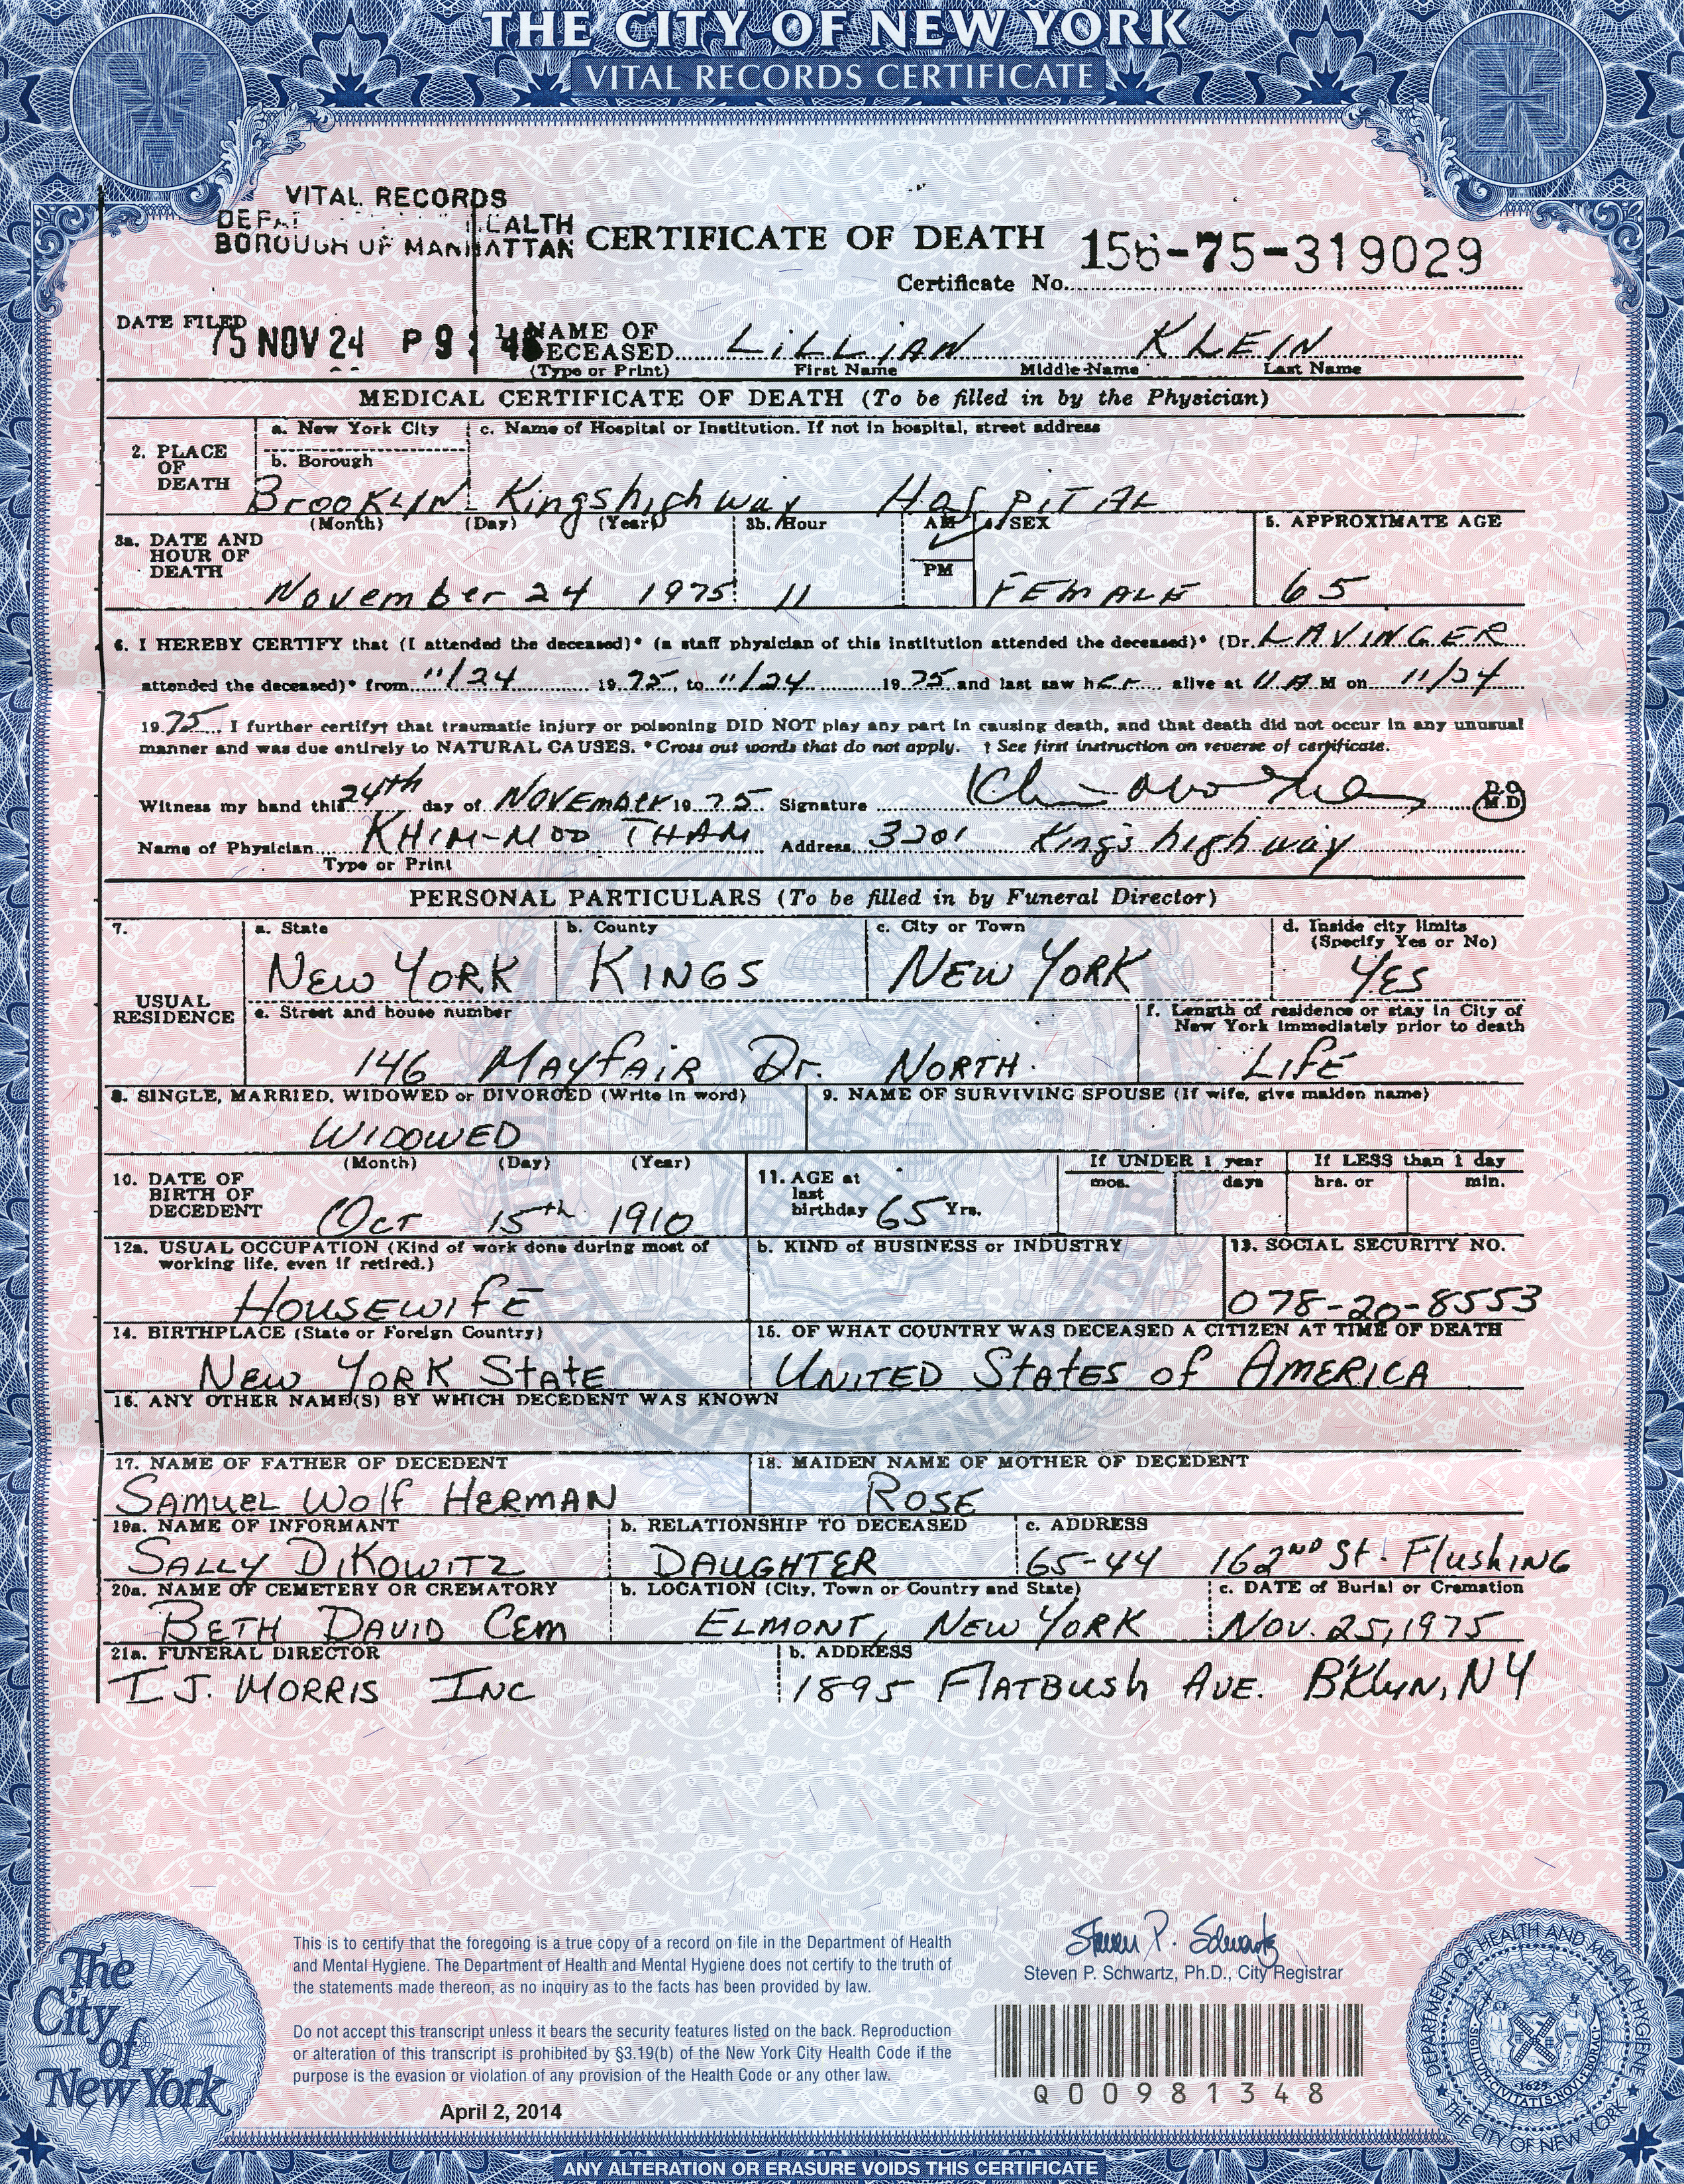 THE CITY OF NEW YORK
VITAL RECORDS CERTIFICATE
VITAL RECORDS
BOROUGH OF MANHATTAN
CERTIFICATE OF DEATH
Certificate No. 156-75-319029
DATE FILED
75 NOV 24 P 9: 46
1. NAME OF DECEASED LiLLiAN KLEIN
(Type or Print) First Name Middle Name Last Name
MEDICAL CERTIFICATE OF DEATH (To be filled in by the Physician)
2. PLACE OF DEATH
a. New York City
b. Borough
BrooKLYN
c. Name of Hospital or Institution. If not in hospital, street address
Kingshighway HosPITAL
3a. DATE AND HOUR OF DEATH
(Month) (Day) (Year)
November 24 1975
3b. Hour
11
AM ✓
PM
4. SEX
FEMALE
5. APPROXIMATE AGE
65
6. I HEREBY CERTIFY that (I attended the deceased)* (a staff physician of this institution attended the deceased)* (Dr. LAVINGER
attended the deceased)* from 11/24 1975, to 11/24 1975 and last saw her alive at 11 A M on 11/24
1975. I further certify† that traumatic injury or poisoning DID NOT play any part in causing death, and that death did not occur in any unusual
manner and was due entirely to NATURAL CAUSES. *Cross out words that do not apply. † See first instruction on reverse of certificate.
Witness my hand this 24th day of NOVEMBER 1975 Signature D.O. M.D.
Name of Physician KHIM-MOO THAM Address 3201 King's highway
Type or Print
PERSONAL PARTICULARS (To be filled in by Funeral Director)
7. USUAL RESIDENCE
a. State
NEW YORK
b. County
KINGS
c. City or Town
NEW YORK
d. Inside city limits (Specify Yes or No)
YES
e. Street and house number
146 MAYFAIR Dr. NORTH.
f. Length of residence or stay in City of New York immediately prior to death
LIFE
8. SINGLE, MARRIED, WIDOWED or DIVORCED (Write in word)
WIDOWED
9. NAME OF SURVIVING SPOUSE (If wife, give maiden name)
10. DATE OF BIRTH OF DECEDENT
(Month) (Day) (Year)
OCT 15th 1910
11. AGE at last birthday 65 Yrs.
If UNDER 1 year
mos. days
If LESS than 1 day
hrs. or min.
12a. USUAL OCCUPATION (Kind of work done during most of working life, even if retired.)
HOUSEWIFE
b. KIND of BUSINESS or INDUSTRY
13. SOCIAL SECURITY NO.
078-20-8553
14. BIRTHPLACE (State or Foreign Country)
NEW YORK STATE
15. OF WHAT COUNTRY WAS DECEASED A CITIZEN AT TIME OF DEATH
UNITED STATES of AMERICA
16. ANY OTHER NAME(S) BY WHICH DECEDENT WAS KNOWN
17. NAME OF FATHER OF DECEDENT
SAMUEL Wolf HERMAN
18. MAIDEN NAME OF MOTHER OF DECEDENT
ROSE
19a. NAME OF INFORMANT
SALLY DIKOWITZ
b. RELATIONSHIP TO DECEASED
DAUGHTER
c. ADDRESS
65-44 162ND St. FlushING
20a. NAME OF CEMETERY OR CREMATORY
BETH DAVID CEM
b. LOCATION (City, Town or Country and State)
ELMONT, NEW YORK
c. DATE of Burial or Cremation
NOV. 25, 1975
21a. FUNERAL DIRECTOR
I J. MORRIS INC
b. ADDRESS
1895 FLATBUSH AVE. B'KLYN, NY
This is to certify that the foregoing is a true copy of a record on file in the Department of Health
and Mental Hygiene. The Department of Health and Mental Hygiene does not certify to the truth of
the statements made thereon, as no inquiry as to the facts has been provided by law.
Do not accept this transcript unless it bears the security features listed on the back. Reproduction
or alteration of this transcript is prohibited by §3.19(b) of the New York City Health Code if the
purpose is the evasion or violation of any provision of the Health Code or any other law.
April 2, 2014
Steven P. Schwartz
Steven P. Schwartz, Ph.D., City Registrar
Q00981348
The City of New York
DEPARTMENT OF HEALTH AND MENTAL HYGIENE
THE CITY OF NEW YORK
SIGILLUM CIVITATIS NOVI EBORACI
1625
ANY ALTERATION OR ERASURE VOIDS THIS CERTIFICATE